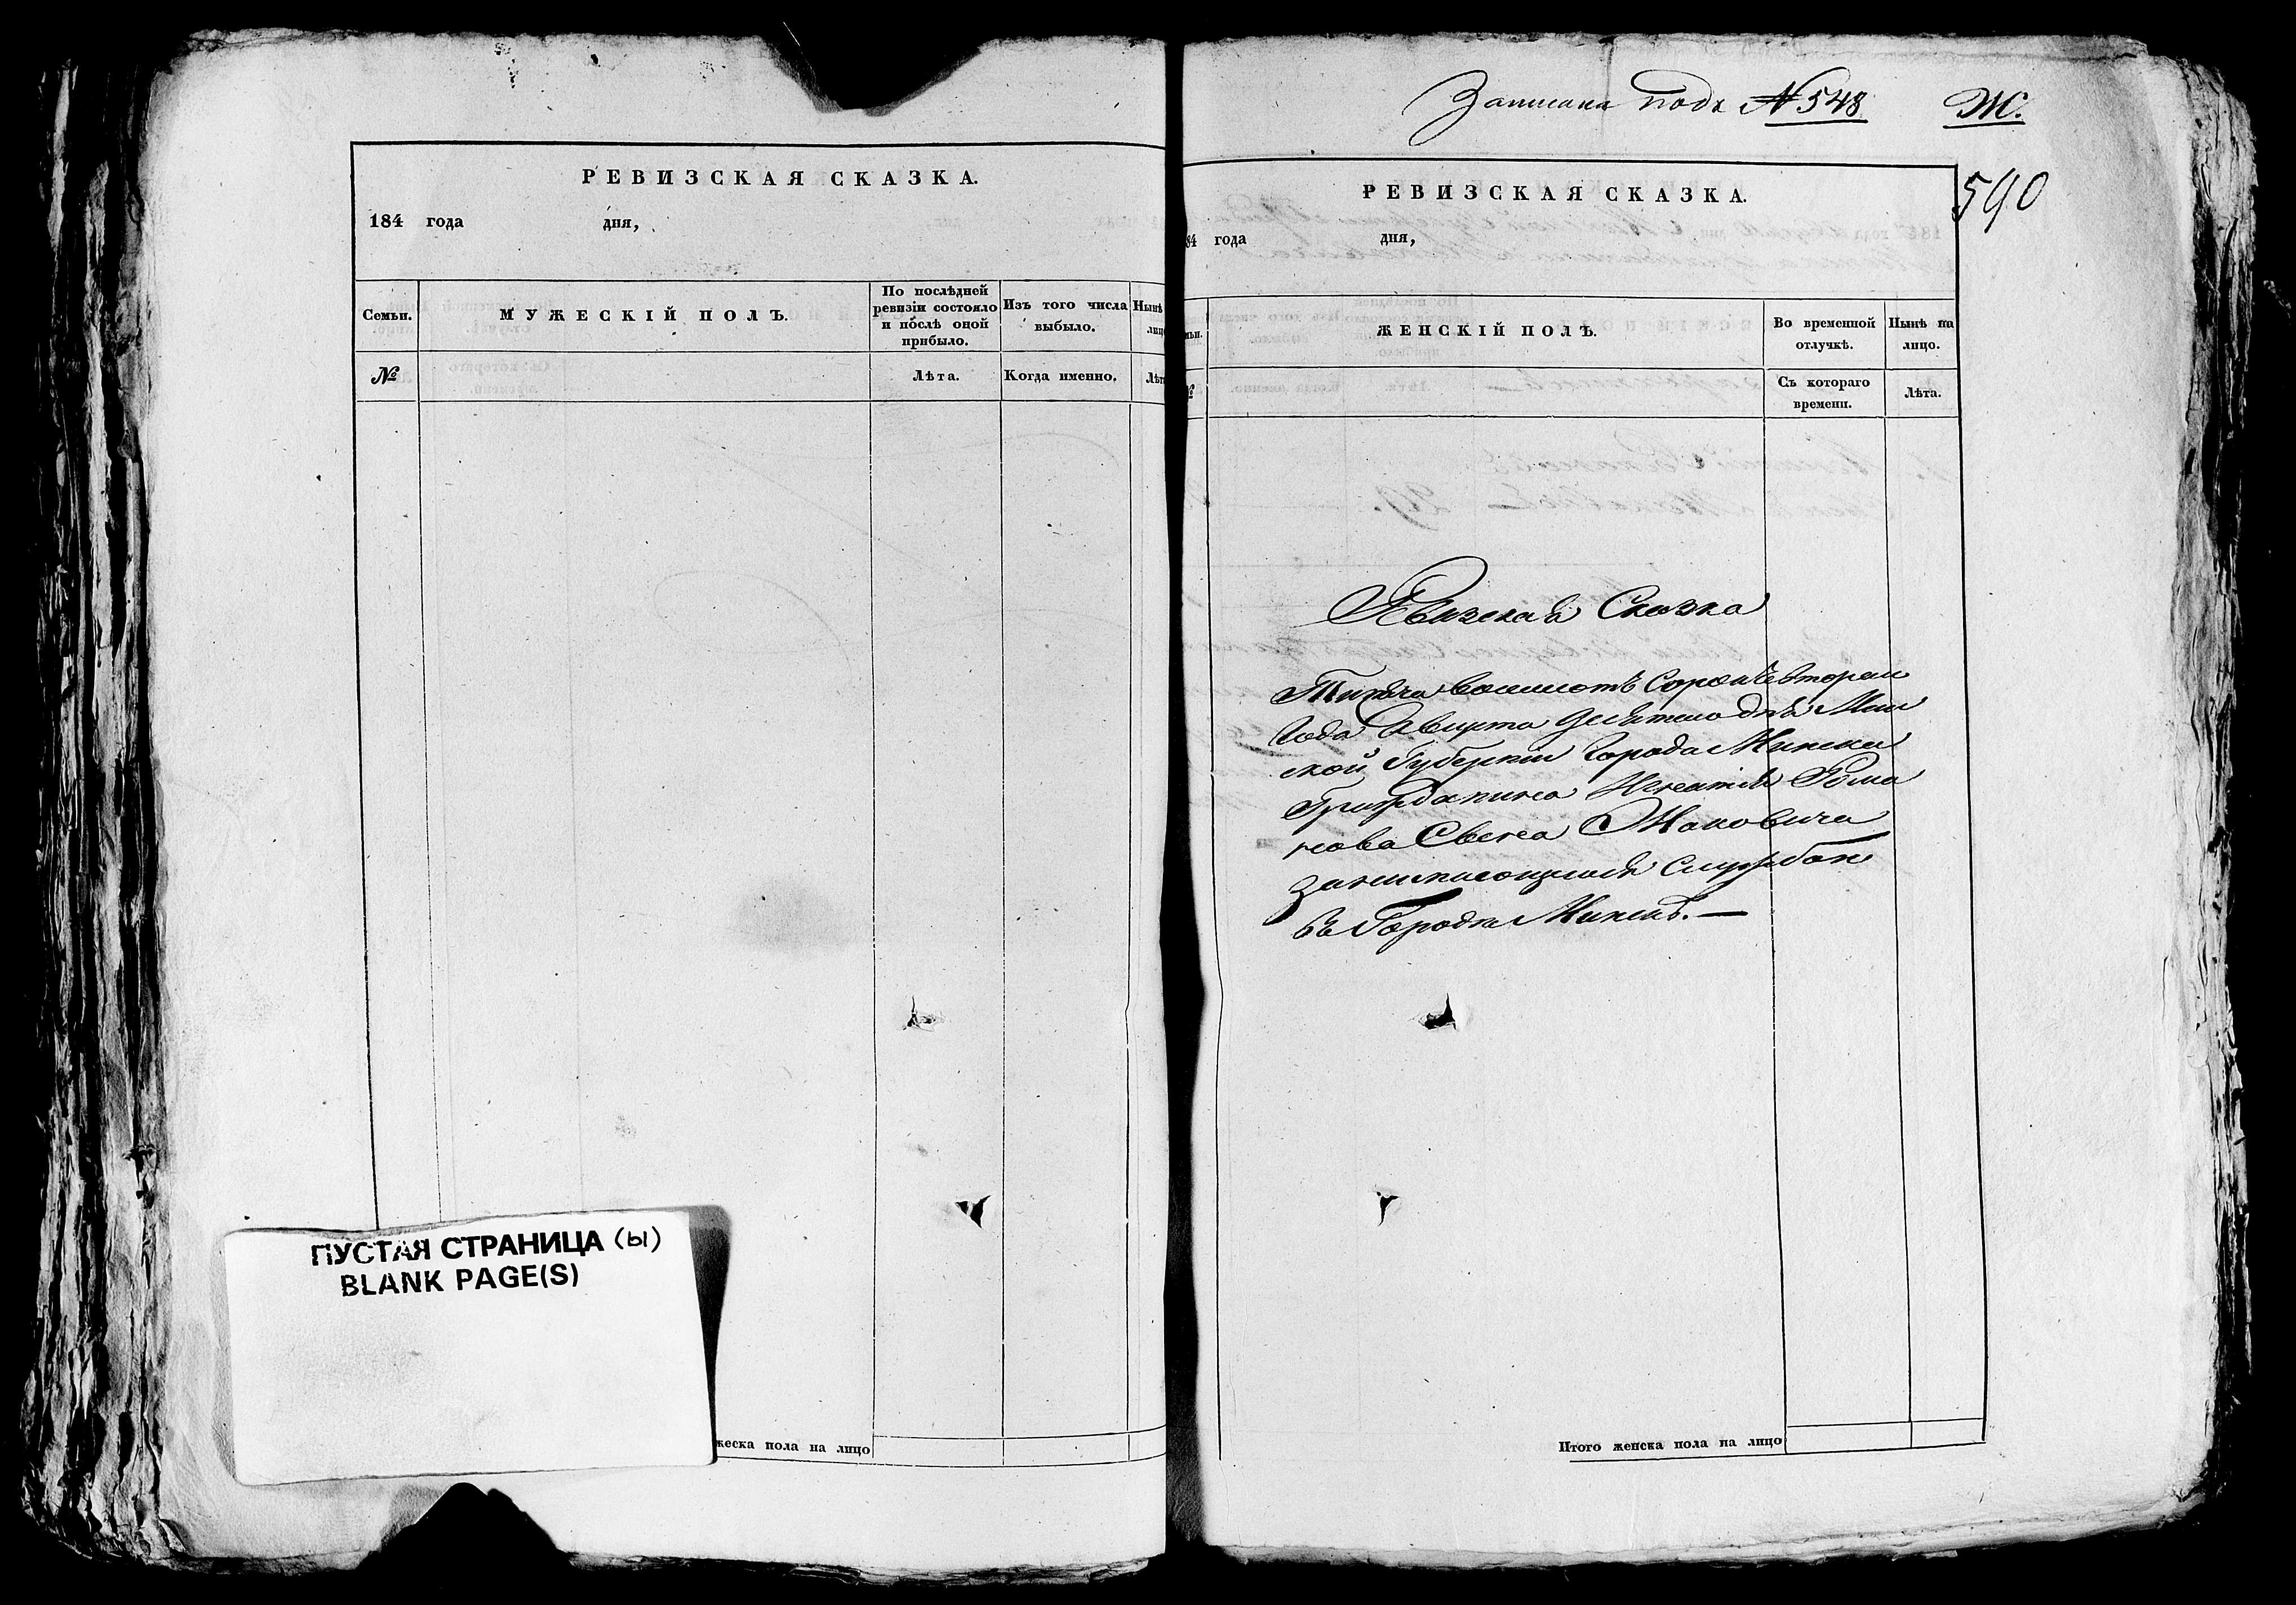 РЕВИЗСКАЯ СКАЗКА.
184 года дня,
Семьи.
МУЖЕСКІЙ ПОЛЪ.
По послѣдней
ревизіи состояло
и послѣ оной
прибыло.
Изъ того числа
выбыло.
Нынѣ
лиц
№
Лѣта.
Когда именно.
Лѣт
ПУСТАЯ СТРАНИЦА (ы)
BLANK PAGE(S)
жеска пола на лицо
Записана подъ № 548 Ж.
590
РЕВИЗСКАЯ СКАЗКА.
84 года дня,
ьи.
ЖЕНСКІЙ ПОЛЪ.
Во временной
отлучкѣ.
Нынѣ на
лицо.
№
Съ котораго
времени.
Лѣта.
Ревизская Сказка
Тысяча восемсотъ сорокъ втораго
Года Августа десятого дня Мин
ской Губерніи Города Минска
Гражданина Игнатія Рома
нова Сына Маковича
занимающагося службою
въ Городѣ Минскѣ. —
Итого женска пола на лицо